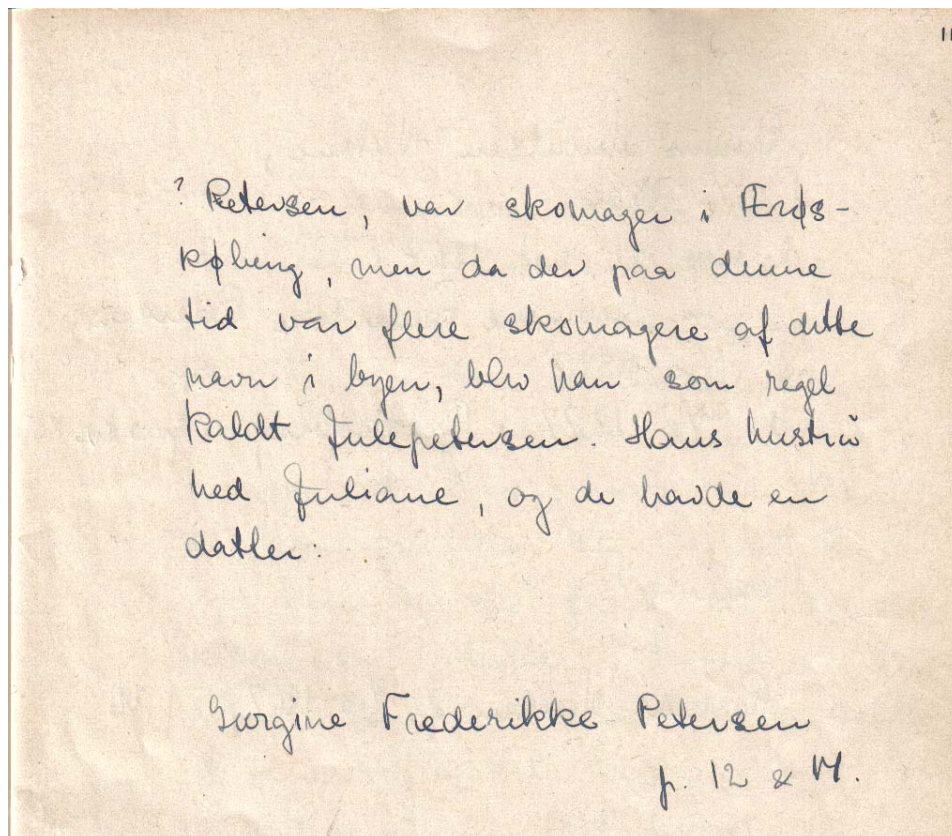 11
? Petersen, var skomager i Ærøs-
købing, men da der paa denne
tid var flere skomagere af dette
navn i byen, blev han som regel
kaldt Julepetersen. Hans hustru
hed Juliane, og de havde en
datter:
Georgine Frederikke Petersen
p. 12 & 14.